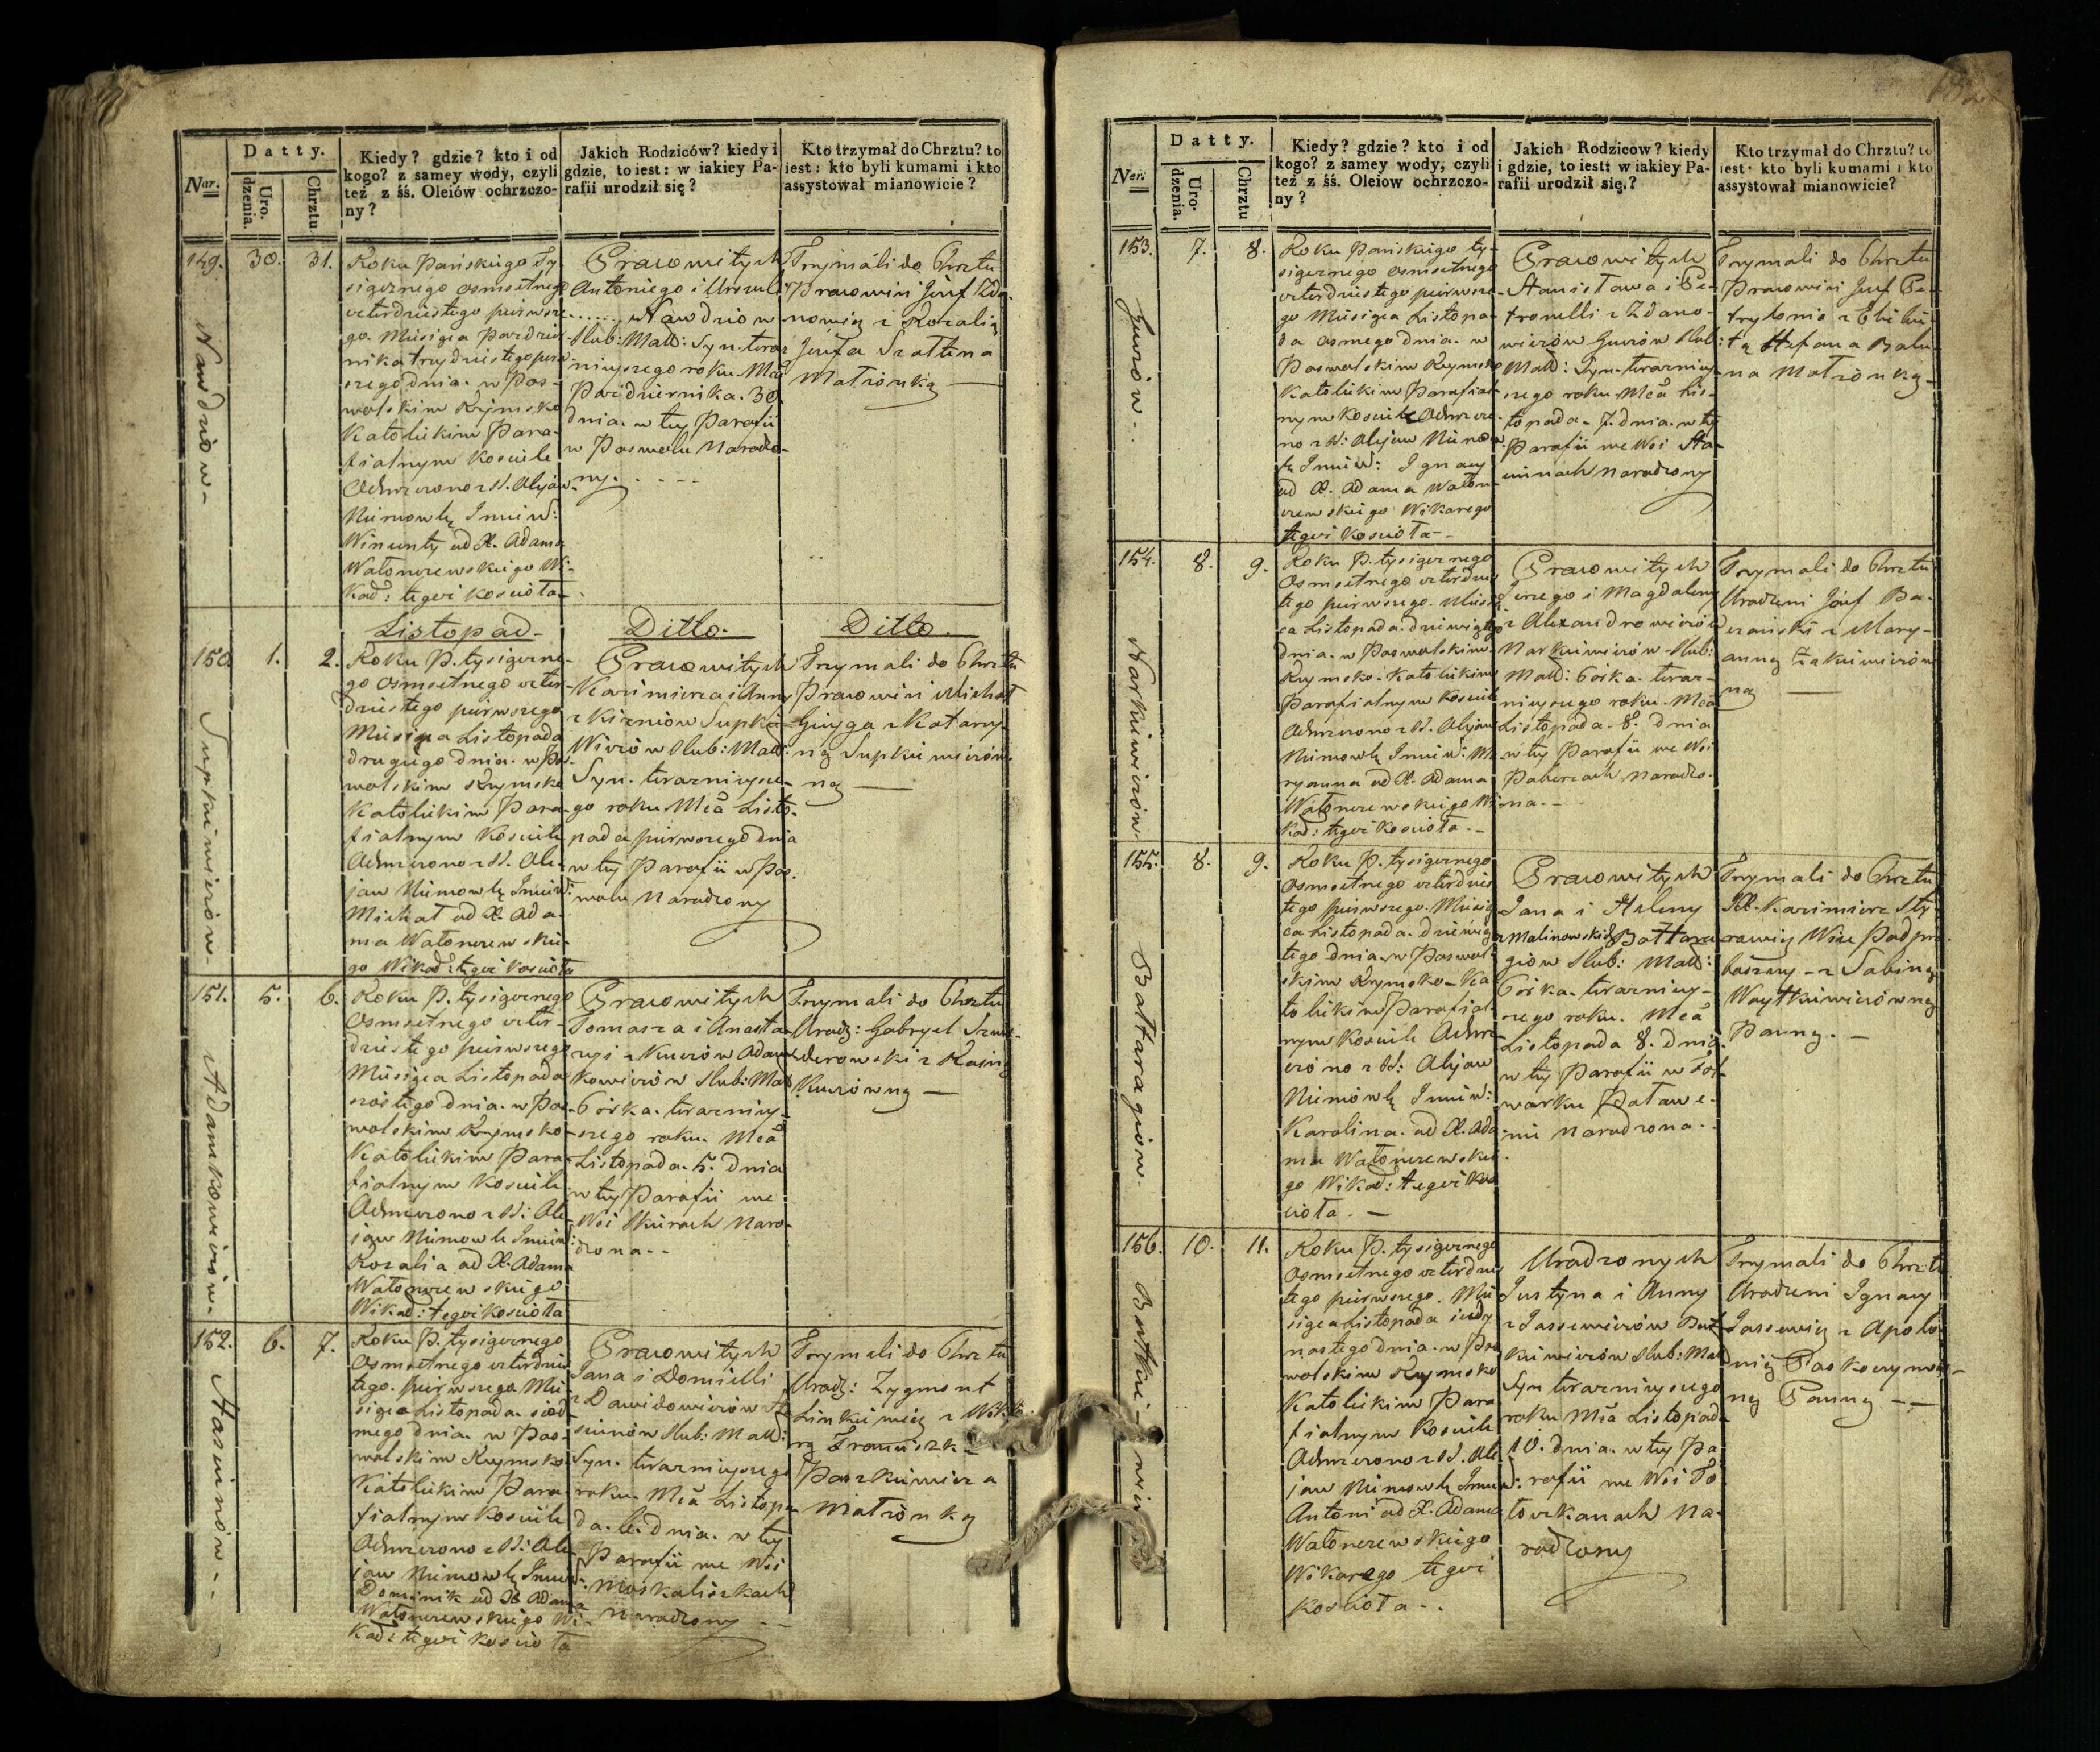 Nar.
Datty.
Uro.
dzenia.
Chrztu
Kiedy? gdzie? kto i od
kogo? z samey wody, czyli
też z śś. Oleiów ochrzczo-
ny?
Jakich Rodziców? kiedy i
gdzie, to iest: w iakiey Pa-
rafii urodził się?
Kto trzymał do Chrztu? to
iest: kto byli kumami i kto
assystował mianowicie?
149.
Nawdziow-
30.
31.
Roku Pańskiego Ty-
siącznego osmsetnego
czterdziestego pierwsze-
go. Miesiąca Paździer-
nika trzydziestego pier-
szego dnia. w Pos-
wolskim Rzymsko
Katolickim Para-
fialnym Kosciele
Ochrzczono z SS. Olejów
Niemowlę Imien:
Wincenty od X. Adama
Wałonczewskiego Wi-
kad: tegoż koscioła-
Prawowitych
Antoniego i Urszuli
....... Nawdziow
Slub: Małż: Syn. teraz
nieyszego roku. Mca
Października. 30.
dnia. w tey Parafii
w Poswolu Narodzo-
ny. - - - -
Trzymali do Chrztu
Prawowici Józef Zda-
nowicz z Rozalią
Józefa Szattena
Matronką
Listopad-
Ditto.
Ditto.
150.
Supkiewiczow-
1.
2.
Roku P. tysiączne-
go osmsetnego czter-
dziestego pierwszego
Miesiąca Listopada
drugiego dnia. w Pos-
wolskim Rzymsko
Katolickim Para-
fialnym Kosciele
Ochrzczono z SS. Ole-
jow Niemowlę Imien:
Michał od X. Ada-
ma Wałonczewskie-
go Wikad: tegoż koscioła
Prawowitych
Kazimierza i Anny
z Kizniów Supkie-
wiczów Slub: Małż:
Syn. teraznieysze-
go roku Mca Listo-
pada pierwszego dnia
w tey Parafii w Pos-
wolu Narodzony
Trzymali do Chrztu
Prawowici Michał
Guyga z Katarzy-
ną Supkiewiczow-
ną
151.
Adamkowiczów-
5.
6.
Roku P. tysiącznego
Osmsetnego czter-
dziestego pierwszego
Miesiąca Listopada
szóstego dnia. w Pos-
wolskim Rzymsko-
Katolickim Para
fialnym Kosciele
Ochrzczono z SS: Ole
jow Niemowle Imien:
Rozalia od X. Adama
Wałonczewskiego
Wikad: tegoż kosciola
Prawowitych
Tomasza i Anasta-
zyi z Kuczów Adam-
kowiczów Slub: Małż
Córka. terazniey-
szego roku. Mca
Listopada. 5. dnia
w tey Parafii we
Wsi Skirach Naro-
dzona--
Trzymali do Chrztu
Urodz: Gabryel
z
Kuczówną
152.
Stasiunów--
6.
7.
Roku P. tysiącznego
Osmsetnego czterdzies
tego. pierwszego Mie-
siąca Listopada siód-
mego dnia. w Pos-
wolskim Rzymsko
Katolickim Para
fialnym Kosciele
Ochrzczono z SS: Ole
jow Niemowlę Imien:
Dominik od X Adama
Wałonczewskiego Wi-
kad: tegoż kosciola
Prawowitych
Jana i Domicelli
z Dawidowiczów Sta-
siunów Slub: Małż:
Syn. teraznieyszego
roku. Mca Listopa-
da. 6. dnia. w tey
Parafii we Wsi
Moskaliszkach
Narodzony --
Trzymali do Chrztu
Urodz: Zygmont
Linkiewicz z
Franciszka
Paszkiewicza
Matronką
Ner.
Datty.
Uro-
dzenia.
Chrztu
Kiedy? gdzie? kto i od
kogo? z samey wody, czyli
też z śś. Oleiow ochrzczo-
ny?
Jakich Rodziców? kiedy
i gdzie, to iest: w iakiey Pa-
rafii urodził się.?
Kto trzymał do Chrztu? to
iest: kto byli kumami i kto
assystował mianowicie?
153.
7.
8.
Roku Pańskiego ty-
siącznego osmsetnego
czterdziestego pierwsze-
go Miesiąca Listopa-
da osmego dnia. w
Poswolskim Rzymsko
Katolickim Parafial-
nym Kosciele Ochrzczo-
no z SS: Olejow Niemow-
lę Imien: Ignacy
od X. Adama Wałon-
czewskiego Wikarego
tegoż Kosciola--
Prawowitych
Stanisława i Pe-
tronelli z Zdano-
wiczów Slub:
Małż: Syn. terazniey-
szego roku Mca Lis-
topada- 7. dnia. w tey
Parafii we Wsi
Narodzony
Trzymali do Chrztu
Prawowici Jozef
z Elżbie-
tą Stefana Balu-
na Matronką-
154.
Narkiewiczów
8.
9.
Roku P. tysiącznego
Osmsetnego czterdzies
tego pierwszego. Miesią
ca Listopada. dziewiątego
dnia. w Poswolskim
Rzymsko-Katolickim
Parafialnym Kosciele
Ochrzczono z SS. Olejow
Niemowlę Imien: Ma-
ryanna od X. Adama
Wałonczewskiego Wi
kad: tegoż Kosciola.-
Prawowitych
Jerzego i Magdaleny
z Alexandrowiczów
Narkiewiczów Slub:
Małż: Córka. teraz-
nieyszego roku. Mca
Listopada. 8. dnia
w tey Parafii we Wsi
Paberzach Narodzo-
na.-
Trzymali do Chrztu
Urodzeni Józef
z Mary-
anną
ną
155.
Battaragiow.
8.
9.
Roku P. tysiącznego
Osmsetnego czterdzies
tego pierwszego. Miesią
ca Listopada. dziewią
tego dnia. w Poswol-
skim Rzymsko-Ka
tolickim Parafial
nym Kosciele Ochrz-
czono z SS: Olejow
Niemowlę Imien:
Karolina. od X. Ada
ma Wałonczewskie
go Wikad: tegoż Kos
ciola. -
Prawowitych
Jana i Heleny
z Malinowskich Battara
giów Slub: Małż:
Córka. terazniey-
szego roku. Mca
Listopada 8. dnia
w tey Parafii w Fol-
warku
Narodzona..
Trzymali do Chrztu
JX. Kazimierz
Wice
z Sabiną
Woytkiewiczówną
Panną. -
156.
10.
11.
Roku P. tysiącznego
Osmsetnego czterdzies
tego pierwszego. Mie
siąca Listopada jedy
nastego dnia. w Pos
wolskim Rzymsko
Katolickim Para
fialnym Kosciele
Ochrzczono z SS. Ole
jow Niemowlę Imien:
Antoni od X. Adama
Wałonczewskiego
Wikarego tegoż
Kosciola..
Urodzonych
Justyna i Anny
z Jassewiczów But-
kiewiczów Slub: Małż
Syn teraznieyszego
roku Mca Listopada
10. dnia. w tey Pa
rafii we Wsi To-
toczkanach Na-
rodzony
Trzymali do Chrztu
Urodzeni Ignacy
Jassewicz z Apolo
nią
ną Panną --